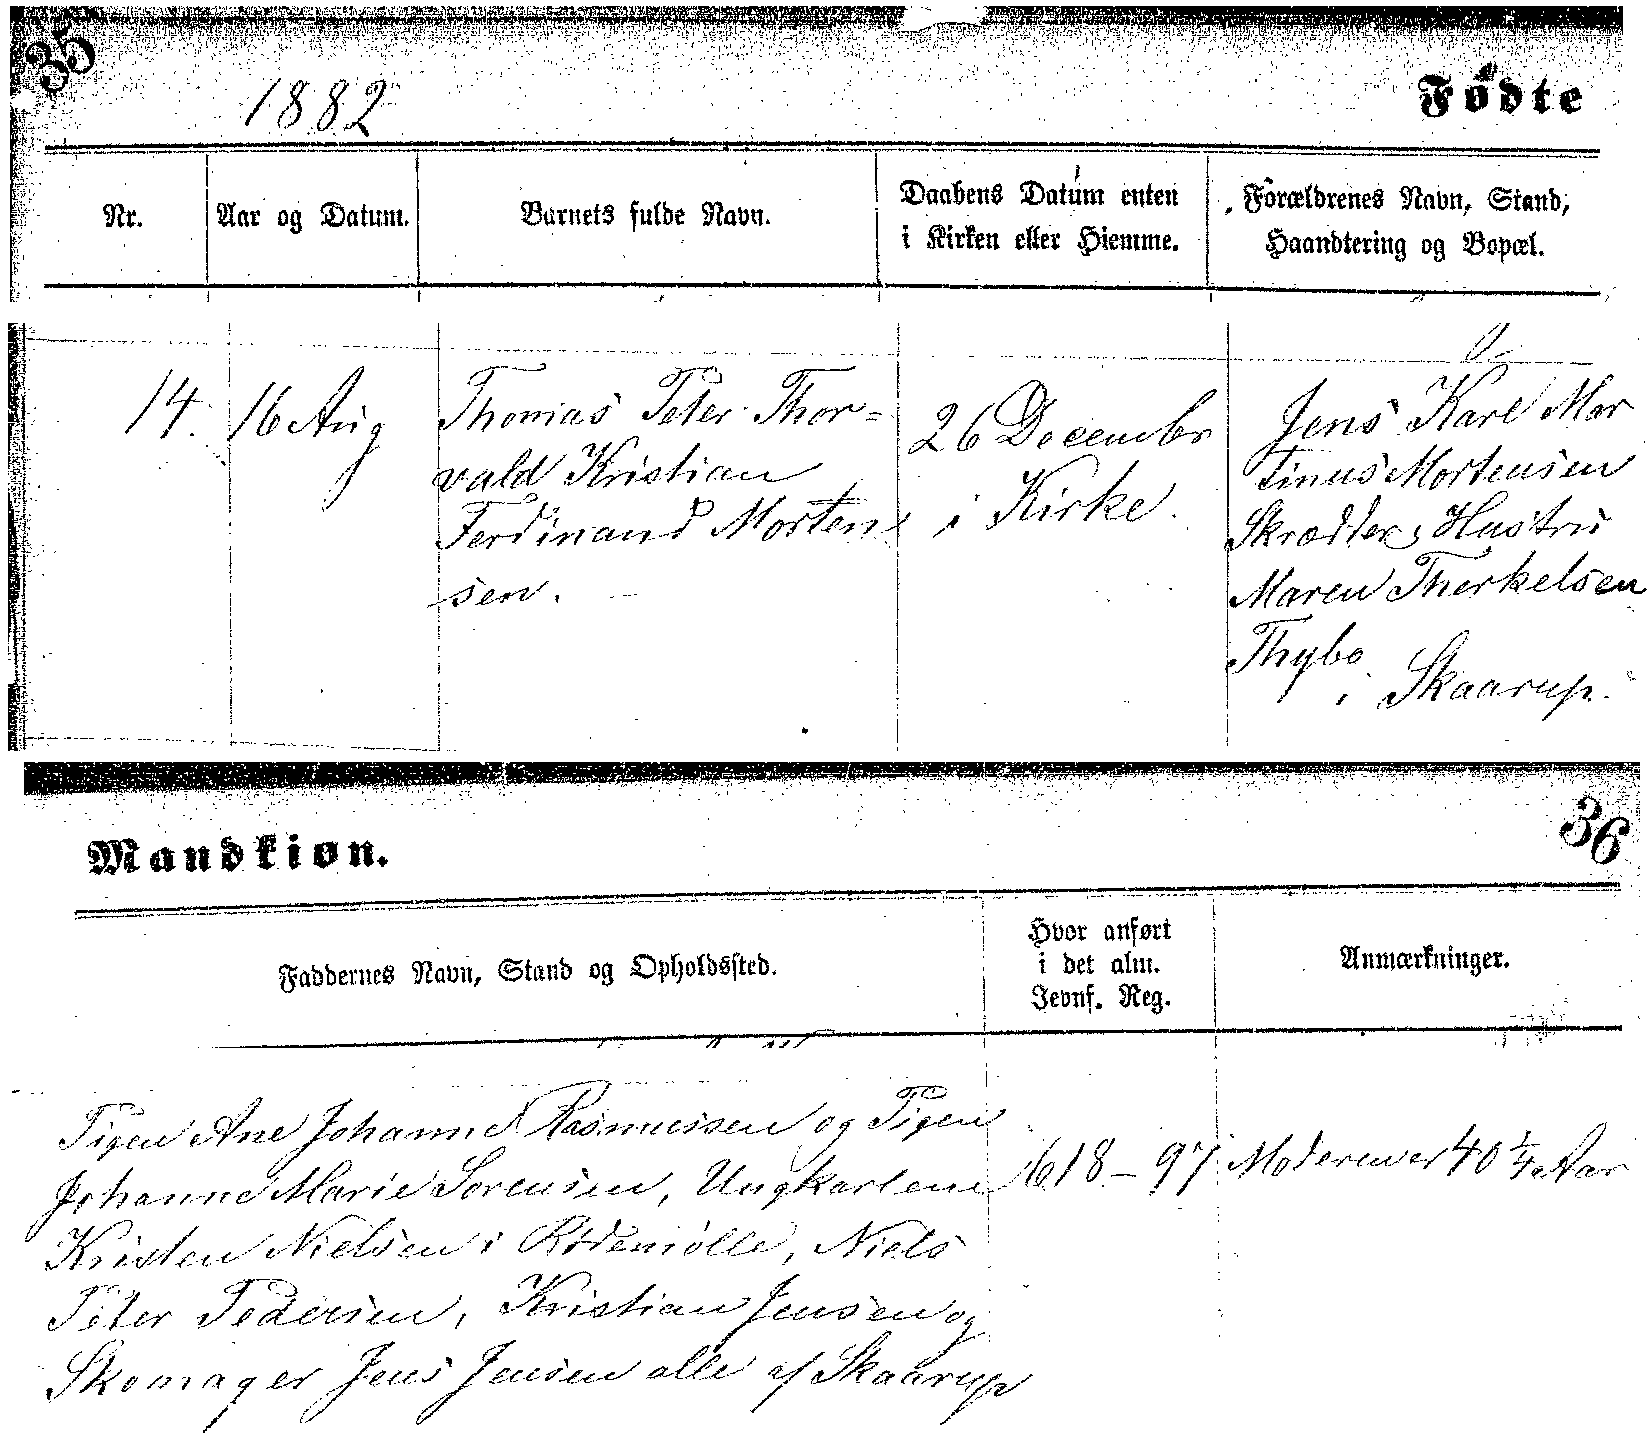 35
1882
Fødte
Nr.
Aar og Datum.
Barnets fulde Navn.
Daabens Datum enten
i Kirken eller Hiemme.
Forældrenes Navn, Stand,
Haandtering og Bopæl.
14.
16 Aug
Thomas Peter Thor=
vald Kristian
Ferdinand Morten
sen.
26 Decembr
i Kirke.
Jens Karl Mar
tinus Mortensen
Skrædder, Hustru
Maren Therkelsen
Thybo
i Skaarup.
Mandkiøn.
36
Faddernes Navn, Stand og Opholdssted.
Hvor anført
i det alm.
Jevnf. Reg.
Anmærkninger.
Pigen Ane Johanne Rasmussen og Pigen
Johanne Marie Sørensen, Ungkarlene
Kristen Nielsen i Rødemølle, Niels
Peter Pedersen, Kristian Jensen og
Skomager Jens Jensen alle af Skaarup
618 – 97
Moderen er 40 1/4 Aar